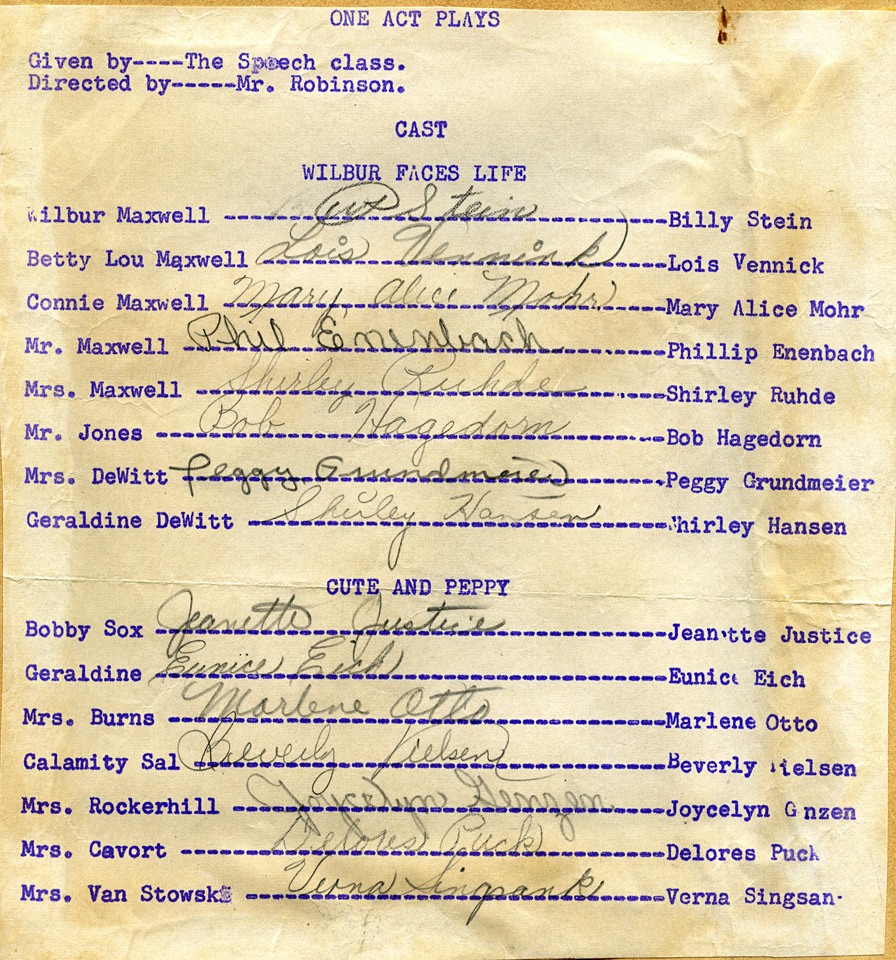 ONE ACT PLAYS
Given by----The Speech class.
Directed by-----Mr. Robinson.
CAST
WILBUR FACES LIFE
Wilbur Maxwell -------- Stein --------Billy Stein
Betty Lou Maxwell Lois Vennink --------Lois Vennick
Connie Maxwell Mary Alice Mohr --------Mary Alice Mohr
Mr. Maxwell Phil Enenbach --------Phillip Enenbach
Mrs. Maxwell Shirley Ruhde --------Shirley Ruhde
Mr. Jones Bob Hagedorn --------Bob Hagedorn
Mrs. DeWitt Peggy Grundmeier --------Peggy Grundmeier
Geraldine DeWitt Shirley Hansen --------Shirley Hansen
CUTE AND PEPPY
Bobby Sox Jeanette Justice --------Jeanette Justice
Geraldine Eunice Eich --------Eunice Eich
Mrs. Burns Marlene Otto --------Marlene Otto
Calamity Sal Beverly Nielsen --------Beverly Nielsen
Mrs. Rockerhill Joycelyn Genzen --------Joycelyn G nzen
Mrs. Cavort Delores Puck --------Delores Puck
Mrs. Van Stowski Verna Singsank --------Verna Singsan